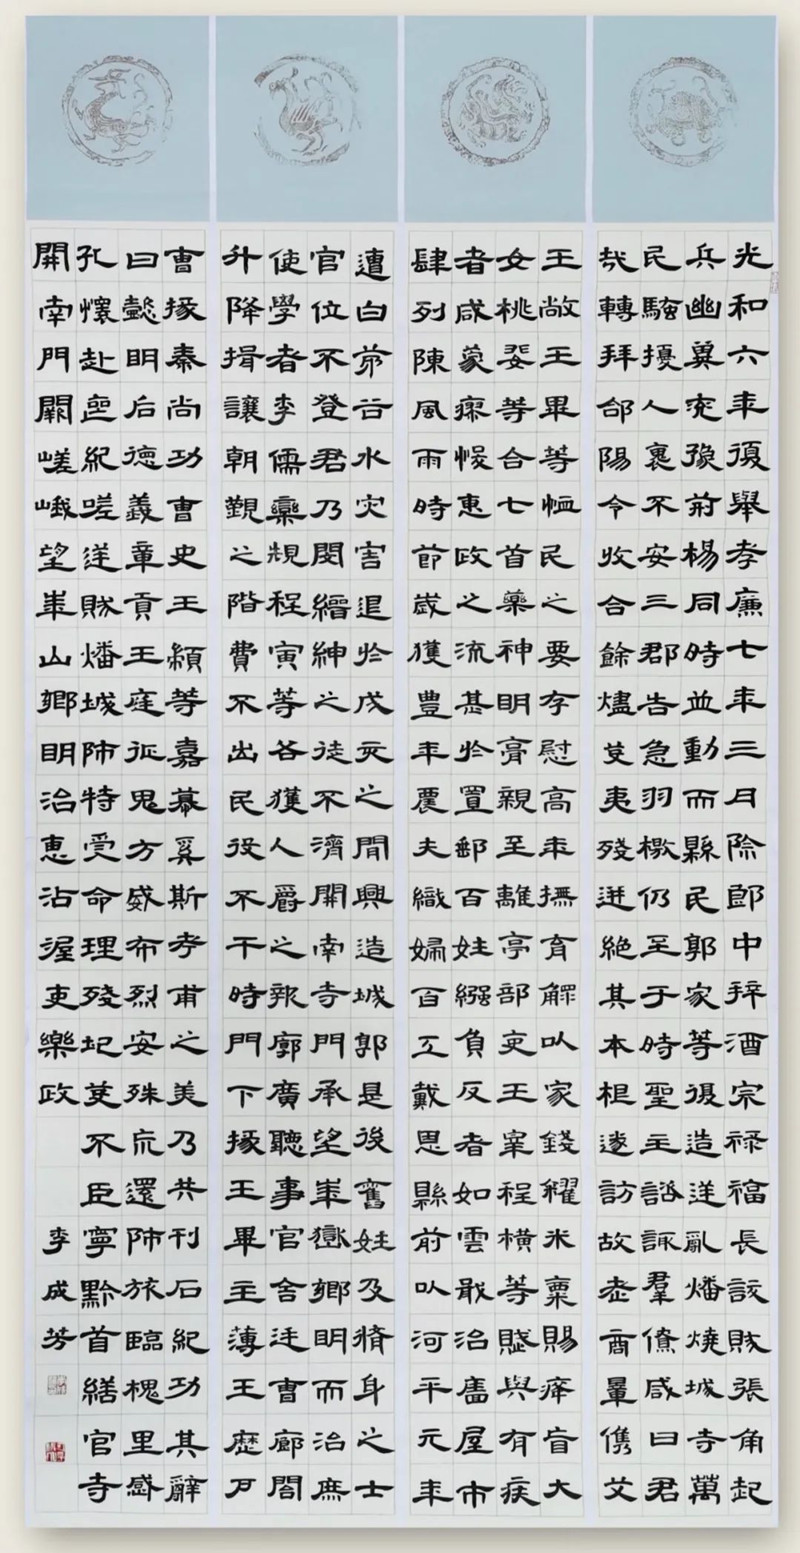 光和六年復舉孝廉七年三月除郎中拜酒泉禄福長訞賊張角起
兵幽冀兖豫荊楊同時並動而縣民郭家等復造逆亂燔燒城寺萬
民騷擾人裹不安三郡告急羽檄仍至于時聖主諮諏羣僚咸曰君
哉轉拜郃陽令收合餘燼芟夷殘迸絕其本根遂訪故老商量儁艾
王敞王畢等恤民之要存慰高年撫育鰥以家錢糴米粟賜癃盲大
女桃婓等合七首藥神明膏親至離亭部吏王宰程橫等賦與有疾
者咸蒙瘳悛惠政之流甚於置郵百姓繈負反者如雲戢治廧屋市
肆列陳風雨時節歲獲豐年農夫織婦百工戴恩縣前以河平元年
遭白茅谷水灾害退於戌亥之閒興造城郭是後舊姓及脩身之士
官位不登君乃閔縉紳之徒不濟開南寺門承望華嶽鄉明而治庶
使學者李儒欒規程寅等各獲人爵之報廓廣聽事官舍廷曹廊閣
升降揖讓朝覲之階費不出民役不干時門下掾王畢主薄王歷户
曹掾秦尚功曹史王顓等嘉慕奚斯考甫之美乃共刊石紀功其辭
曰懿明后德義章貢王庭征鬼方威布烈安殊荒還師旅臨槐里感
孔懷赴喪紀嗟逆賊燔城市特受命理殘圮芟不臣寧黔首繕官寺
開南門闕嵯峨望華山鄉明治惠沾渥吏樂政
李成芳